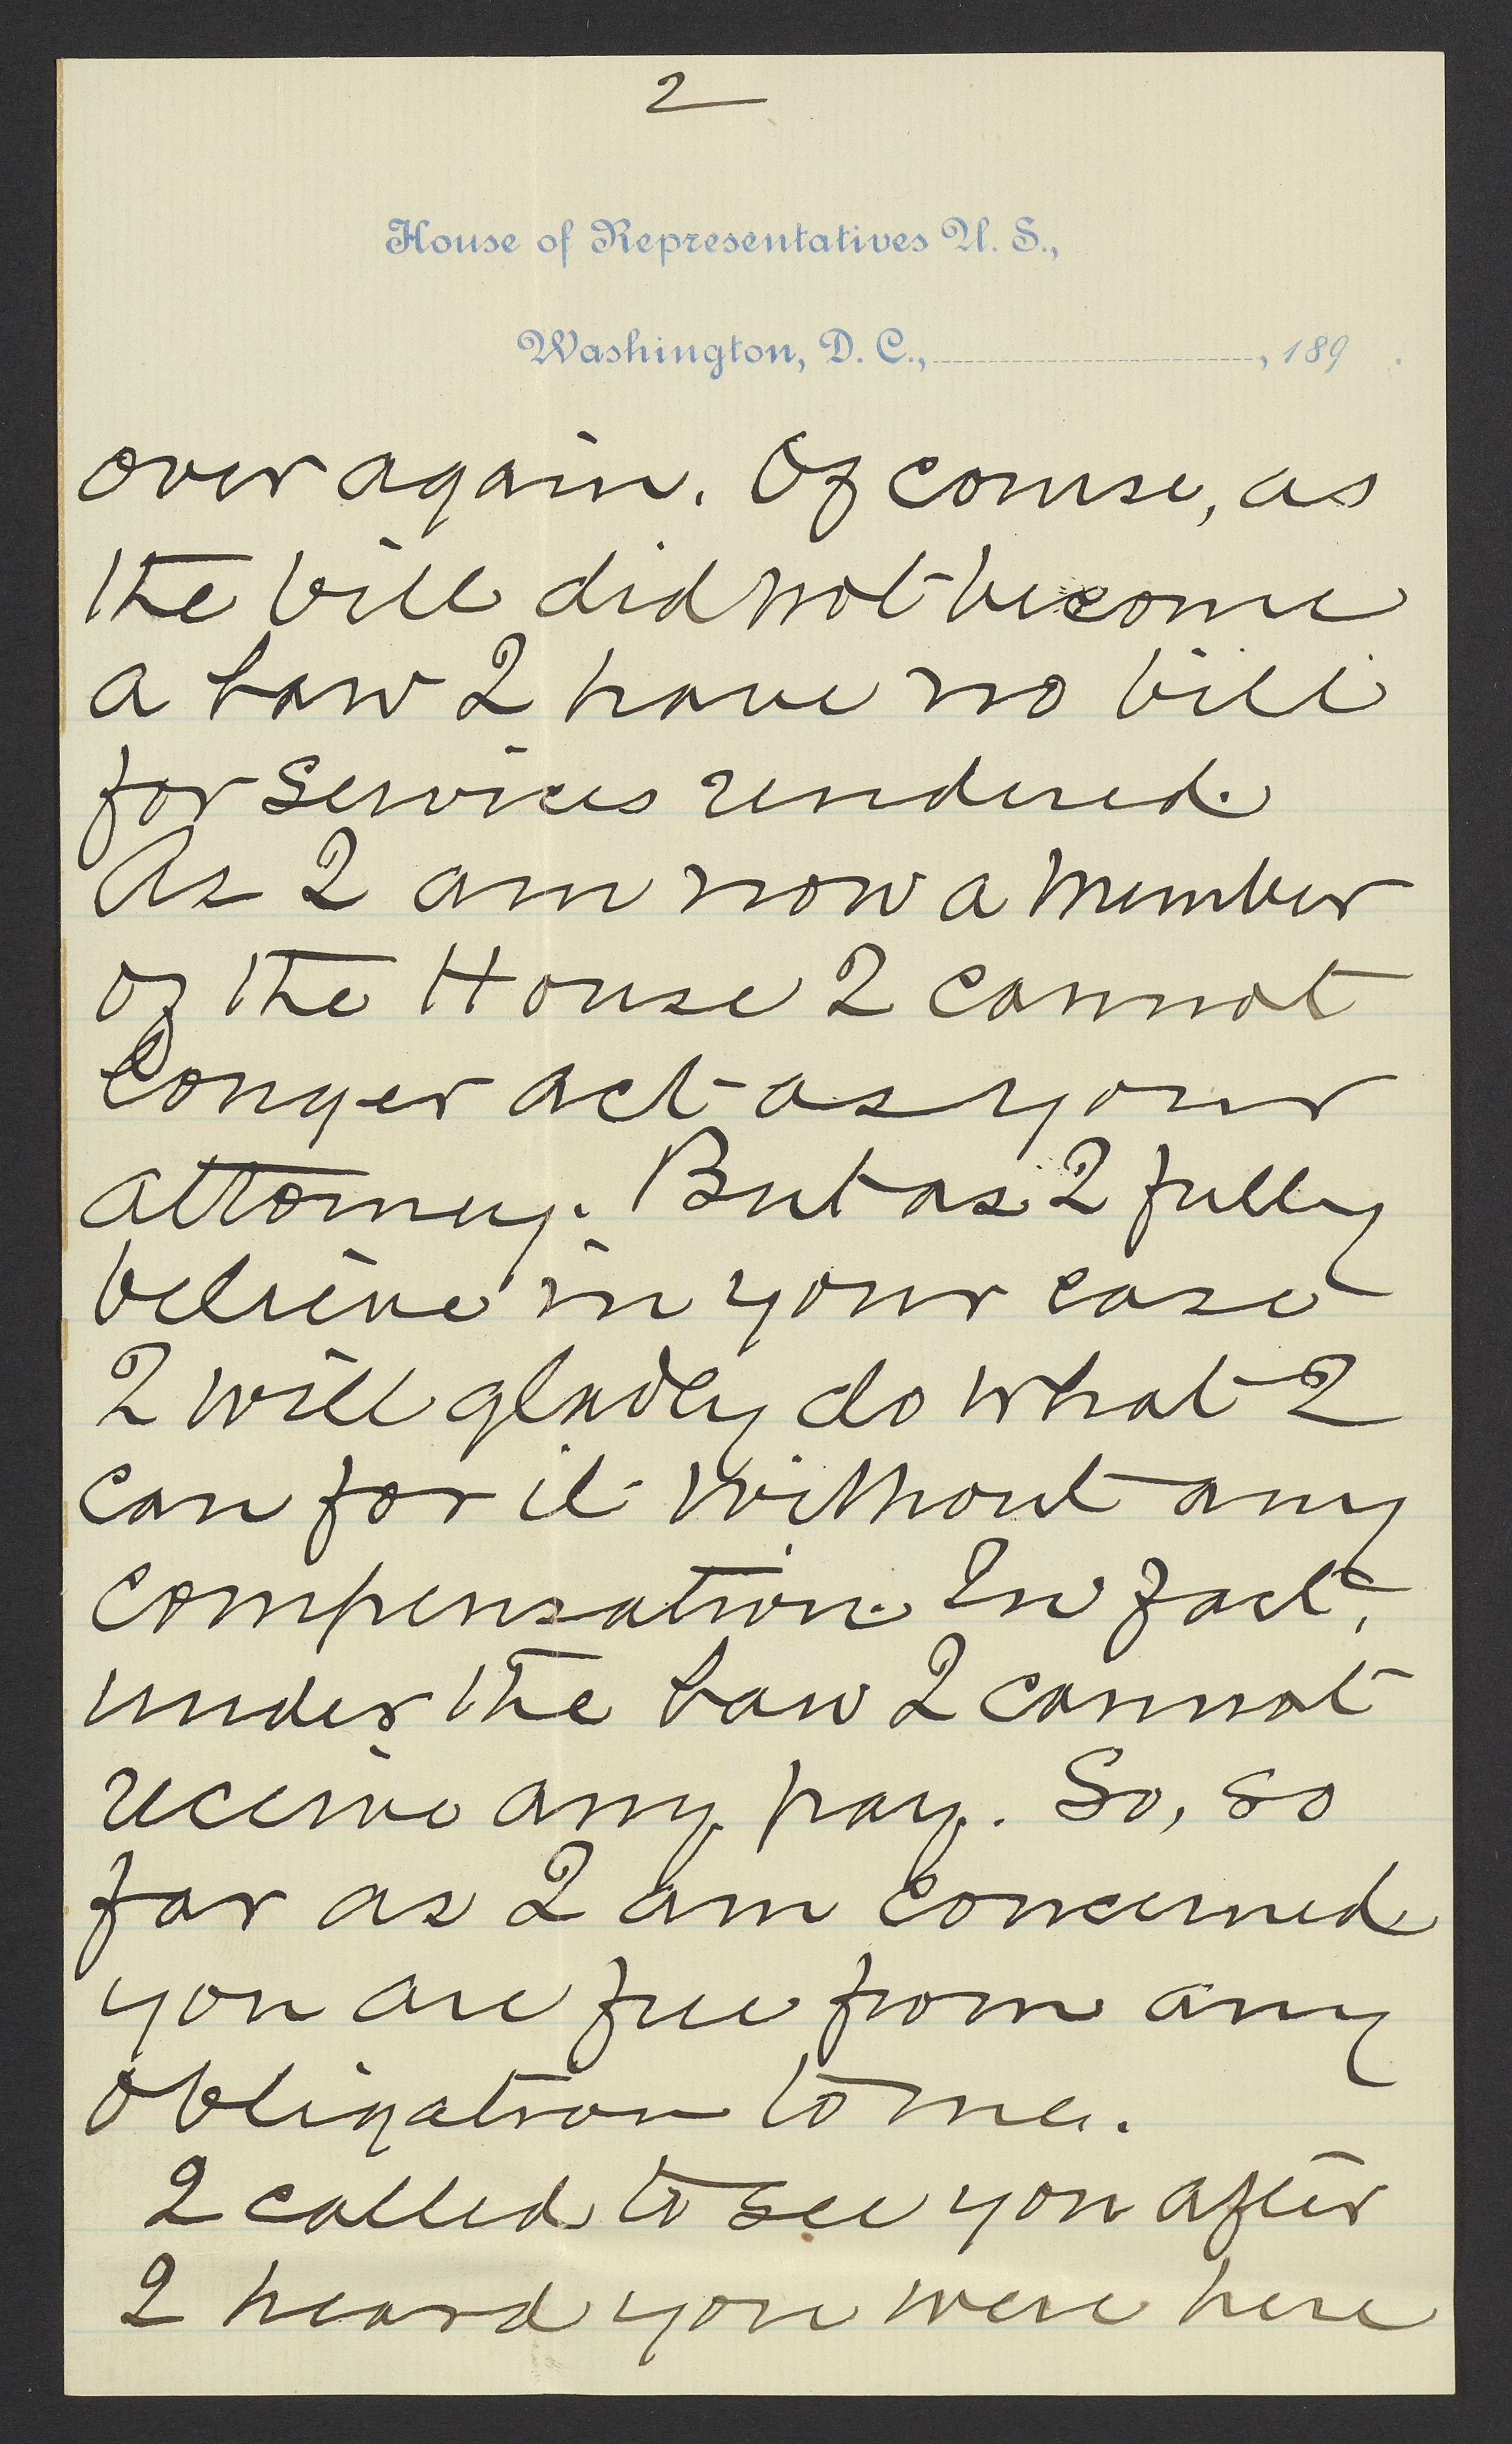 2
House of Representatives U. S.,
Washington, D. C., , 189 .
over again. Of course, as
the bill did not become
a law I have no bill
for services rendered.
As I am now a member
of the House I cannot
longer act as your
attorney. But as I fully
believe in your case
I will gladly do what I
can for it without any
compensation. In fact,
under the law I cannot
receive any pay. So, so
far as I am concerned
you are free from any
obligation to me.
I called to see you after
I heard you were here